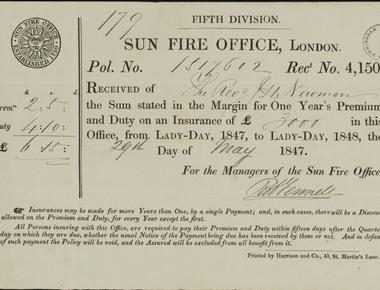 179
FIFTH DIVISION.
SUN FIRE OFFICE
SUN FIRE OFFICE, LONDON.
ESTABLISHED 1710
Pol. No. 1517602 Rect No. 4,150
RECEIVED of The Revd J H Newman
the Sum stated in the Margin for One Year's Premium
and Duty on an Insurance of £ 3000 in this
Office, from LADY-DAY, 1847, to LADY-DAY, 1848, the
29th Day of May 1847.
For the Managers of the Sun Fire Office
s. d.
Prem 2.5:
Duty 4.10:
£ 6.15:
☞ Insurances may be made for more Years than One, by a single Payment; and, in such cases, there will be a Discount
allowed on the Premium and Duty, for every Year except the first.
All Persons insuring with this Office, are required to pay their Premium and Duty within fifteen days after the Quarter
day on which they are due, whether the usual Notice of the Payment being has been received by them or not. And in default
of such payment the Policy will be void, and the Assured will be excluded from all benefit from it.
Printed by Harrison and Co., 45, St. Martin's Lane.